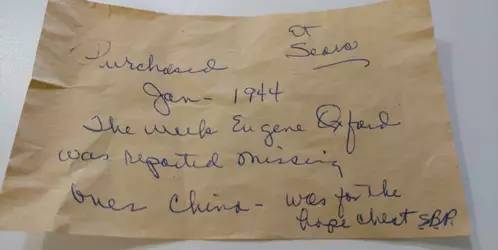 Purchased at Sears
Jan - 1944
The week Eugene Oxford
was reported missing
over China - was for the
hope chest S.B.P.